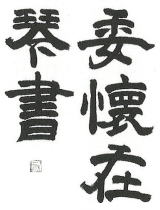 委懷在
琴書